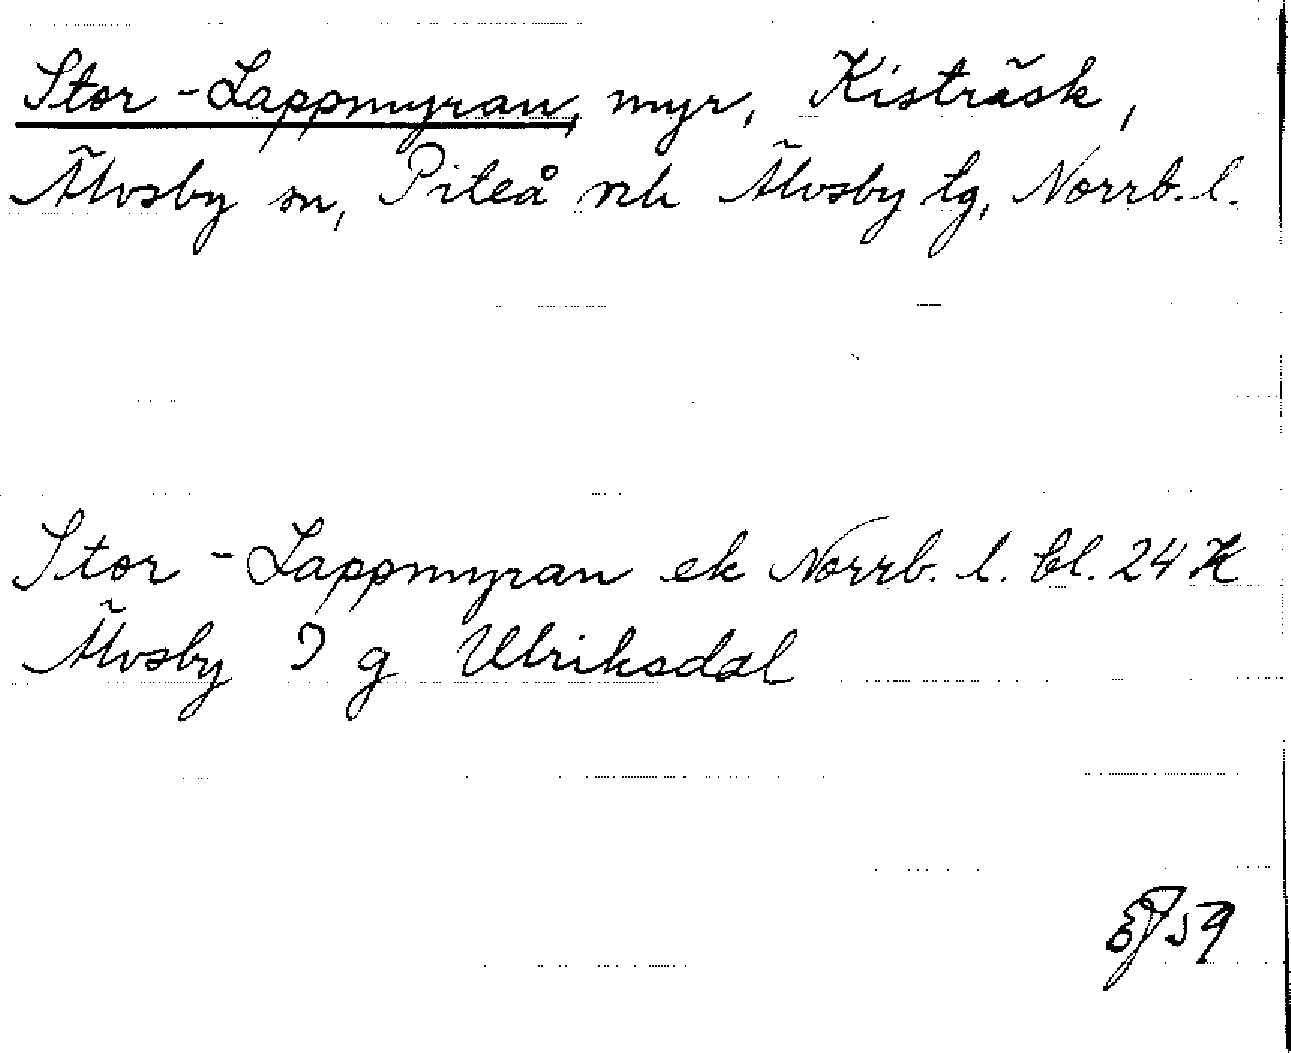 Stor-Lappmyran, myr, Kisträsk,
Älvsby sn, Piteå och Älvsby tg, Norrb. l.
Stor-Lappmyran ek Norrb. l. bl. 24 K
Älvsby I g Ulriksdal
59